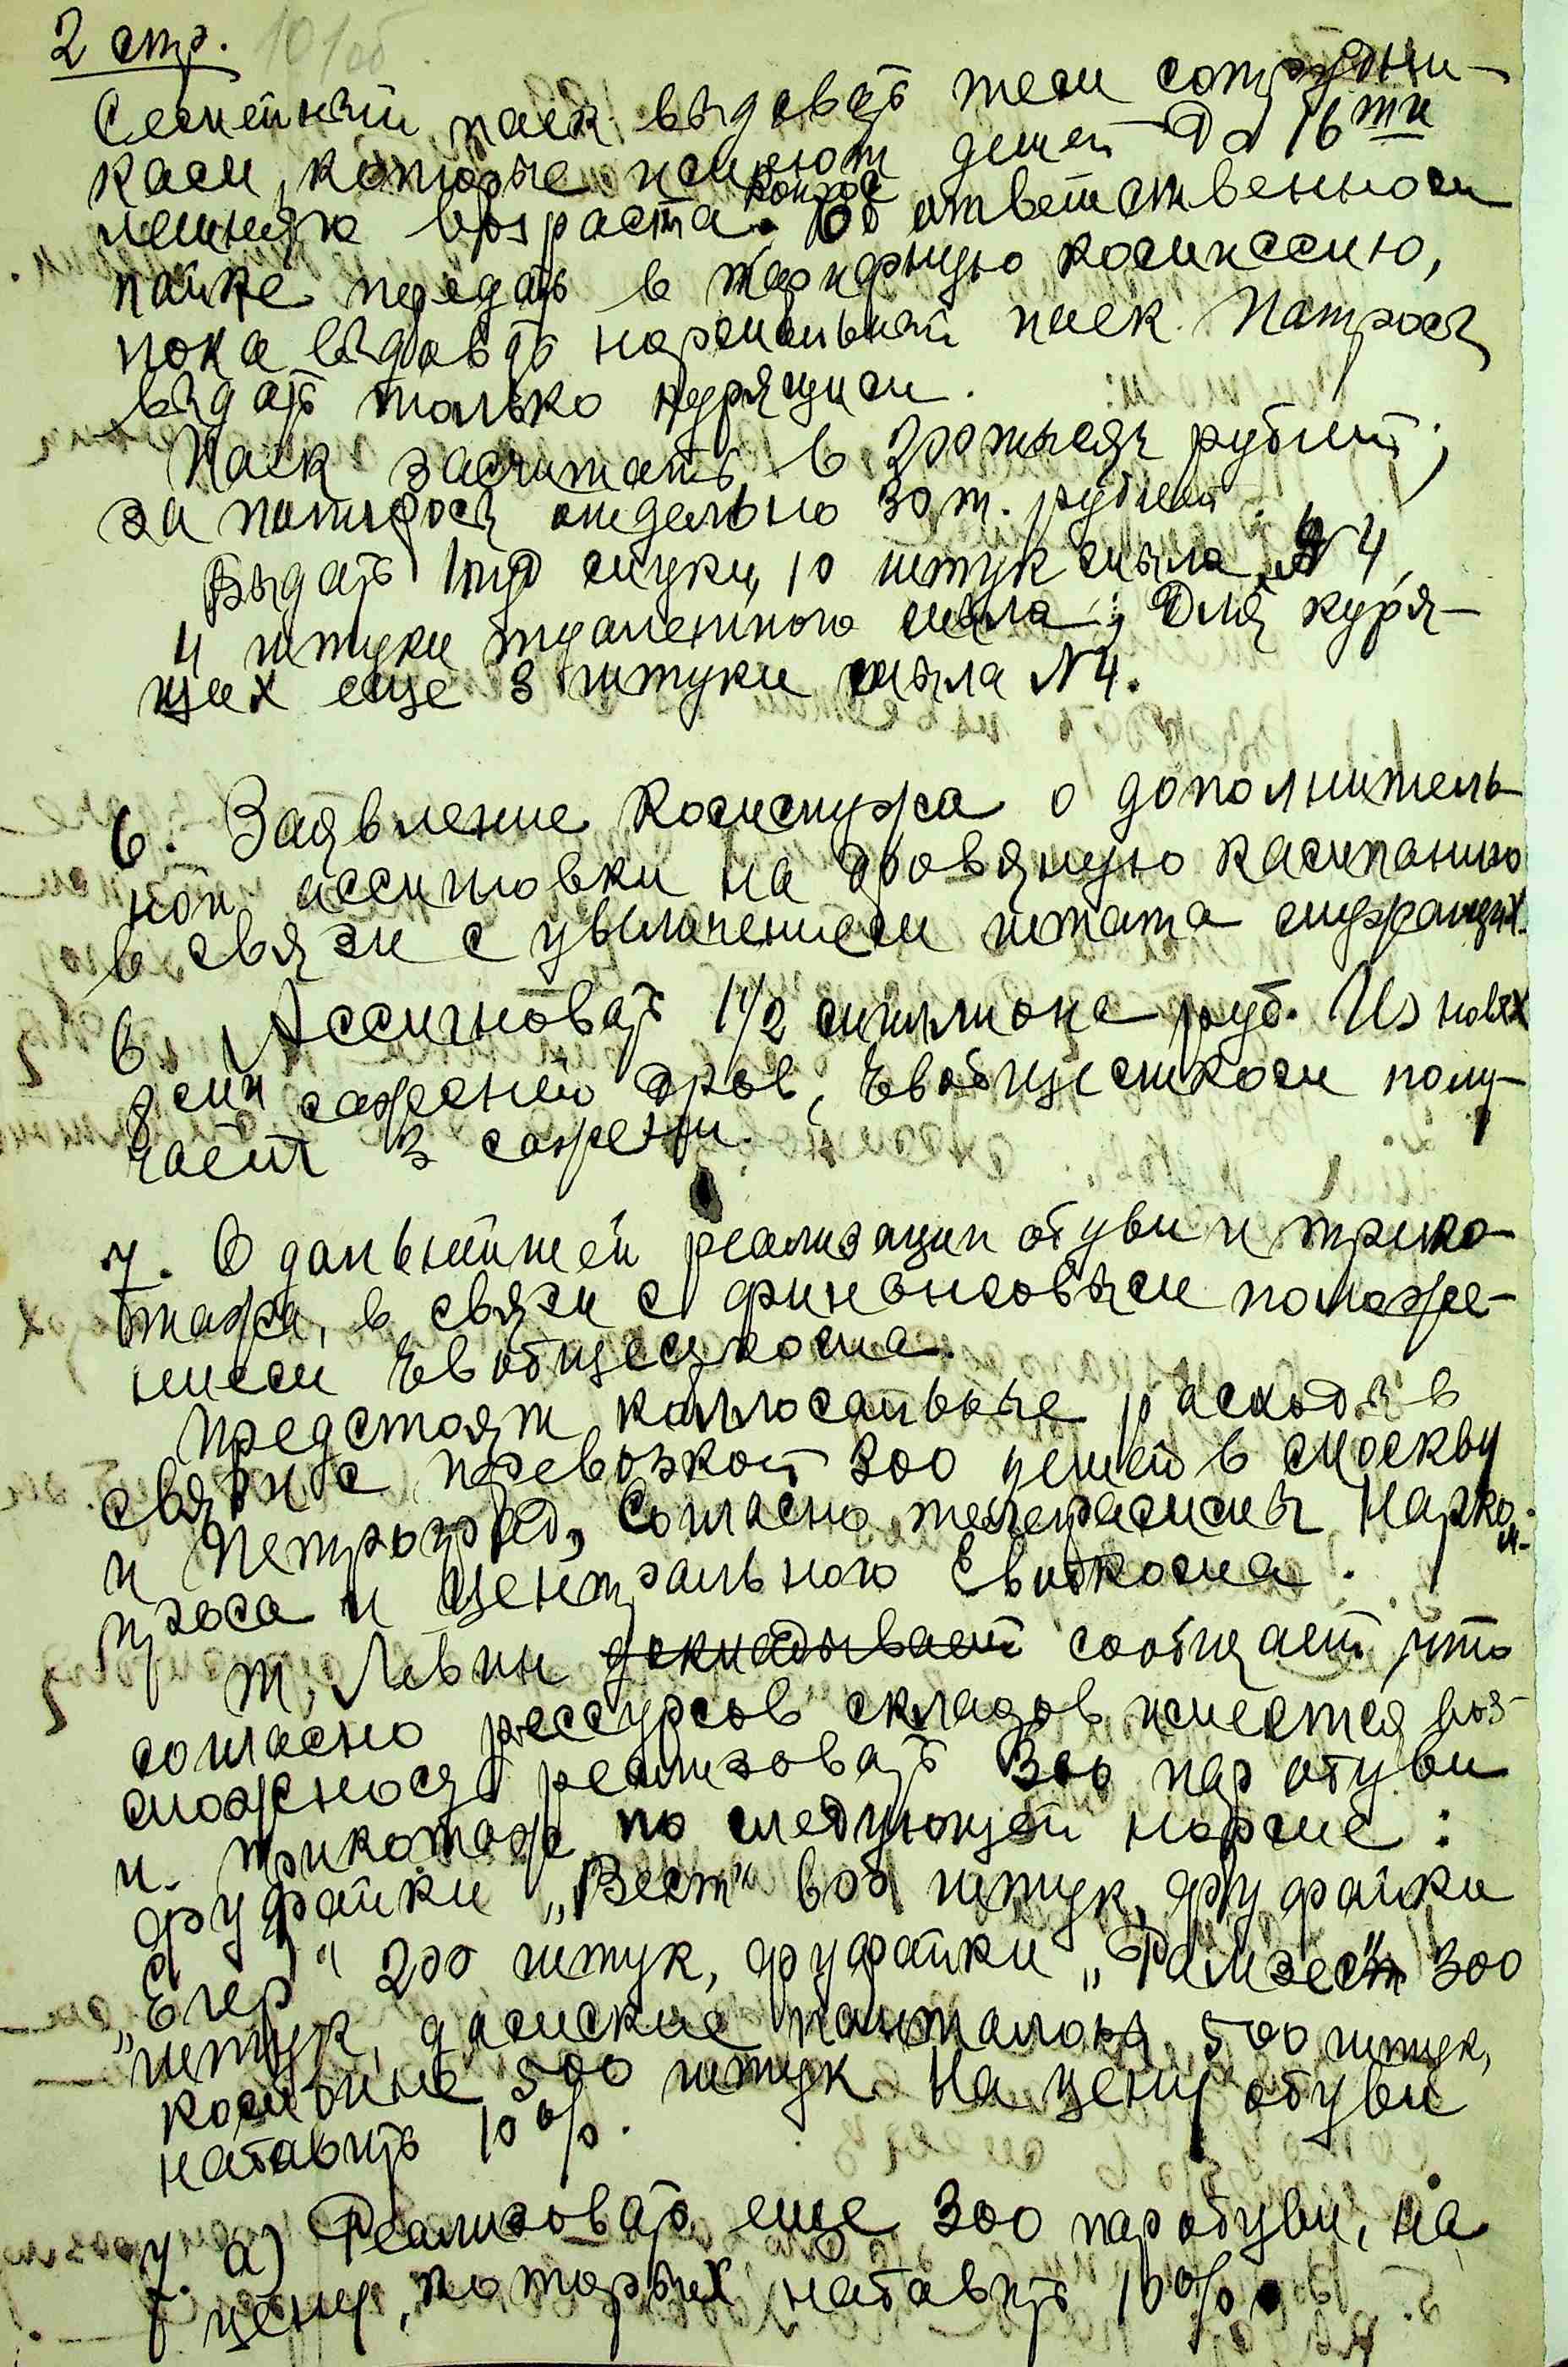 2 стр. 101 об.
Семейный паек выдавать тем сотрудни-
кам, которые имеют детей до 16ти
летняго возраста. Вопрос об ответственном
пайке передать в тарифную комиссию,
пока выдавать нормальный паек. Папросы
выдать только курящим.
Паек засчитать в 200 тысяч рублей;
за папиросы отдельно 30 т. рублей.
Выдать 1 пуд муки, 10 штук мыла N 4,
4 штуки туалетного мыла; Для куря-
щих еще 3 штуки мыла N 4.
6. Заявление Комслужа о дополнитель
ной ассигновки на дровяную кампанию
в связи с увеличением штата служащих.
6. Ассигновать 1 1/2 миллиона руб. Из новых
8ми саженей дров, Евобщестком полу-
чает 3 сажени.
7. О дальнейшей реализации обуви и трико-
тажа, в связи с финансовым положе-
нием Евобщесткома.
Предстоят коллосальные расходы в
связи с перевозкой 300 детей в Москву
и Петроград, Согласно телеграммы Нарком-
проса и Центрального Евобкома.
т. Левин докладывает сообщает, что
согласно рессурсов складов имеется воз-
можность реализовать 300 пар обуви
и трикотаж по следующей норме:
фуфайки „Вест" 800 штук, фуфайки
„Егер" 200 штук, фуфайки „Рамзес" 300
штук, дамские панталоны 500 штук,
комбине 500 штук. На цену обуви
набавить 10%.
7. а) Реализовать еще 300 пар обуви, на
цену, которых набавить 10%.